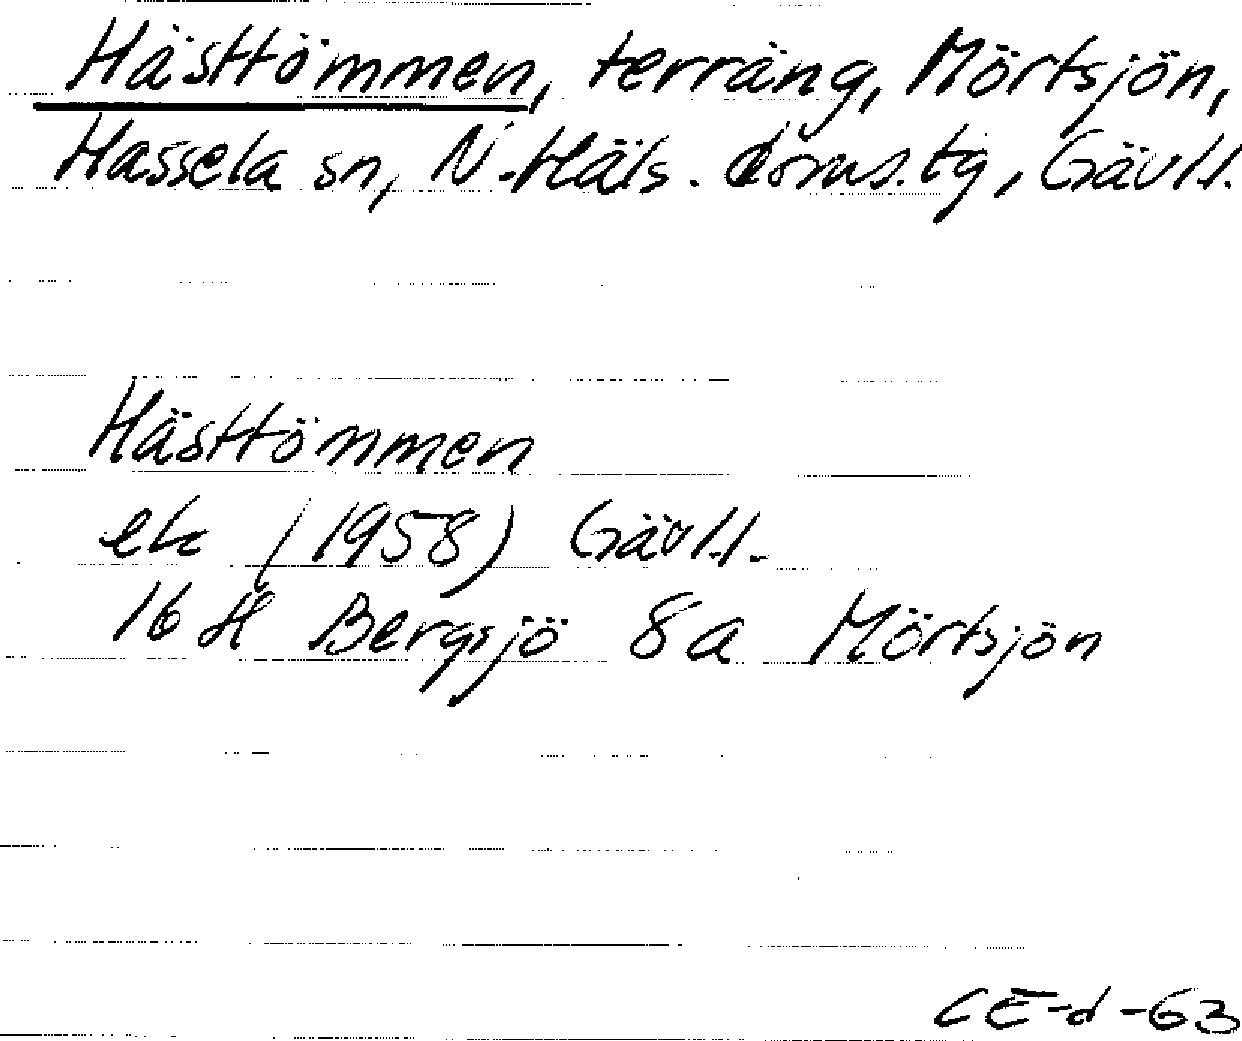 Hästtömmen, terräng, Mörtsjön,
Hassela sn, N. Häls. doms.tg, Gävl.l.
Hästtömmen
ek (1958) Gävl.l.
16 H Bergsjö 8a Mörtsjön
CE-d-63